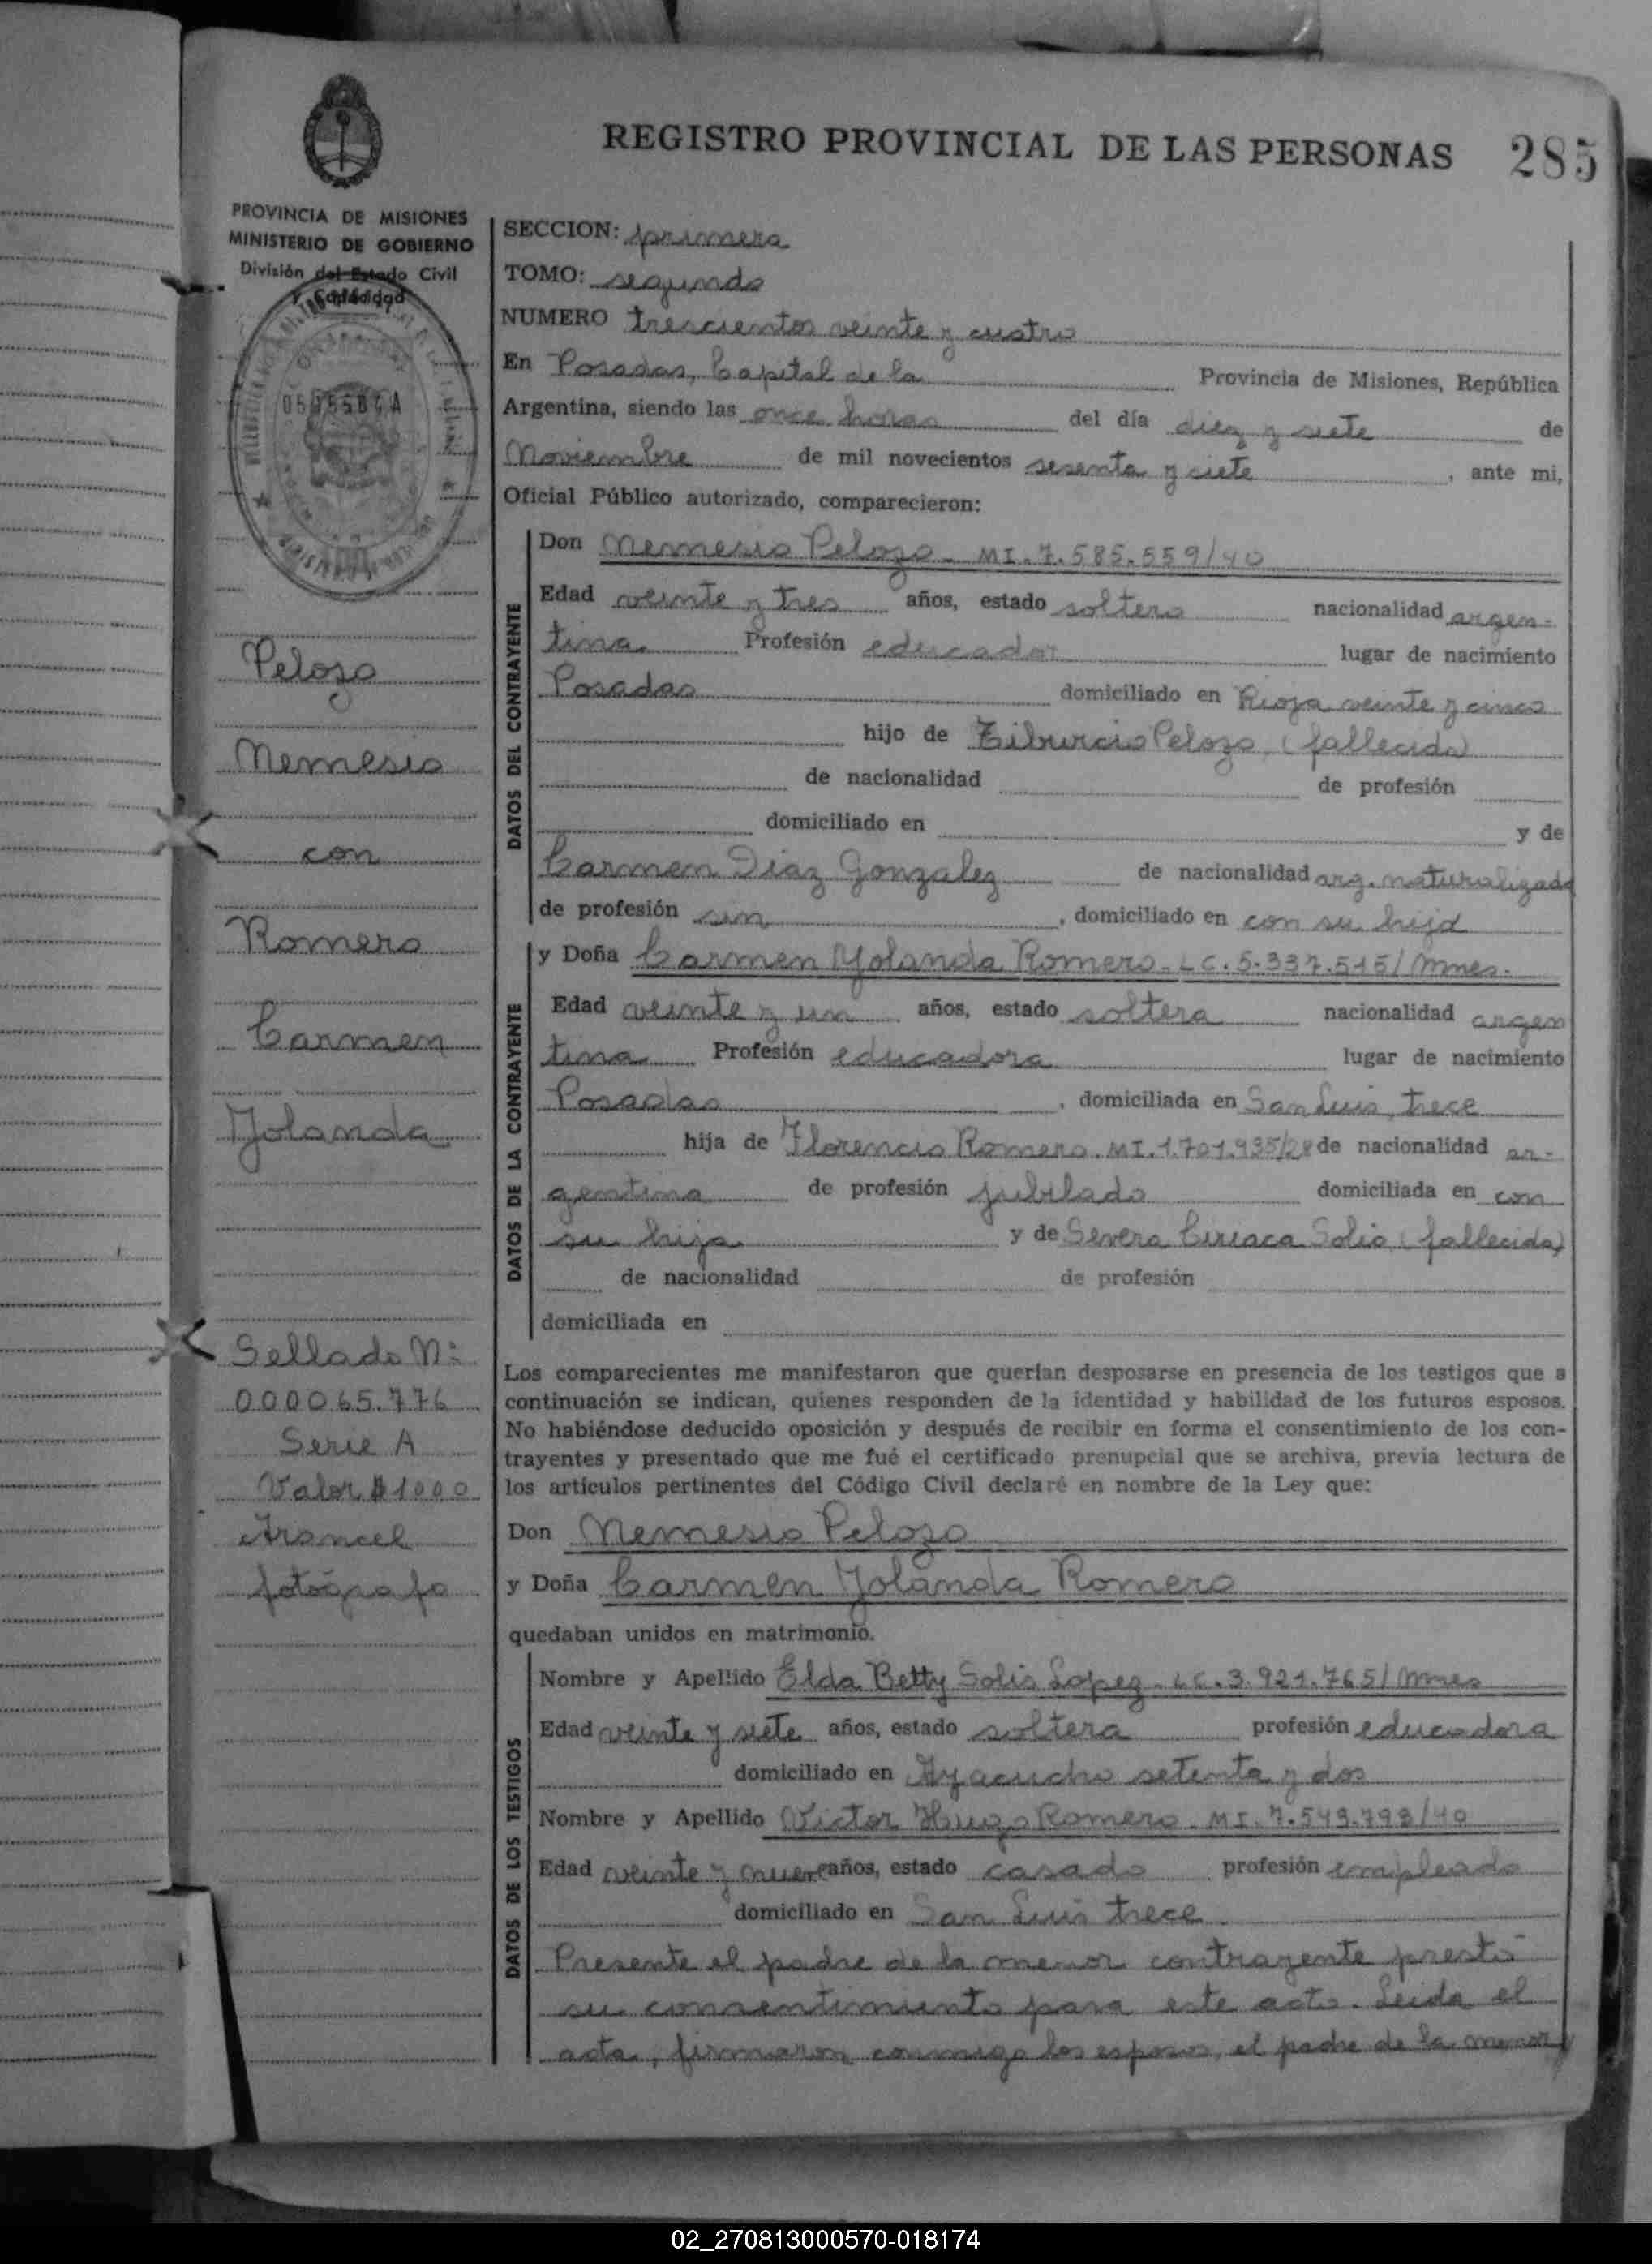 REGISTRO PROVINCIAL DE LAS PERSONAS 285
PROVINCIA DE MISIONES
MINISTERIO DE GOBIERNO
División del Estado Civil
y Capacidad
Pelozo
Nemesio
con
Romero
Carmen
Yolanda
Sellado Nº
000065.776
Serie A
Valor $1000
Arancel
fotógrafo
SECCION: primera
TOMO: segundo
NUMERO trescientos veinte y cuatro
En Posadas, Capital de la Provincia de Misiones, República
Argentina, siendo las once horas del día diez y siete de
Noviembre de mil novecientos sesenta y siete, ante mi,
Oficial Público autorizado, comparecieron:
DATOS DEL CONTRAYENTE
Don Nemesio Pelozo - MI. 7.585.559/40
Edad veinte y tres años, estado soltero nacionalidad argen-
tina Profesión educador lugar de nacimiento
Posadas domiciliado en Rioja veinte y cinco
hijo de Tiburcio Pelozo (fallecido)
de nacionalidad de profesión
domiciliado en y de
Carmen Diaz Gonzalez de nacionalidad arg. naturalizada
de profesión sin, domiciliado en con su hijo
DATOS DE LA CONTRAYENTE
y Doña Carmen Yolanda Romero - LC. 5.337.515/ Mnes.
Edad veinte y un años, estado soltera nacionalidad argen
tina Profesión educadora lugar de nacimiento
Posadas, domiciliada en San Luis, trece
hija de Florencio Romero. MI. 1.701.935/28 de nacionalidad ar-
gentina de profesión jubilado domiciliada en con
su hija y de Severa Ciriaca Solis (fallecida)
de nacionalidad de profesión
domiciliada en
Los comparecientes me manifestaron que querían desposarse en presencia de los testigos que a
continuación se indican, quienes responden de la identidad y habilidad de los futuros esposos.
No habiéndose deducido oposición y después de recibir en forma el consentimiento de los con-
trayentes y presentado que me fué el certificado prenupcial que se archiva, previa lectura de
los artículos pertinentes del Código Civil declaré en nombre de la Ley que:
Don Nemesio Pelozo
y Doña Carmen Yolanda Romero
quedaban unidos en matrimonio.
DATOS DE LOS TESTIGOS
Nombre y Apellido Elda Betty Solis Lopez - LC. 3.921.765/ Mnes
Edad veinte y siete años, estado soltera profesión educadora
domiciliado en Ayacucho setenta y dos
Nombre y Apellido Victor Hugo Romero - MI. 7.549.793/40
Edad veinte y nueve años, estado casado profesión empleado
domiciliado en San Luis trece
Presente el padre de la menor contrayente prestó
su consentimiento para este acto. Leida el
acta, firmaron conmigo los esposos, el padre de la menor y
02_270813000570-018174